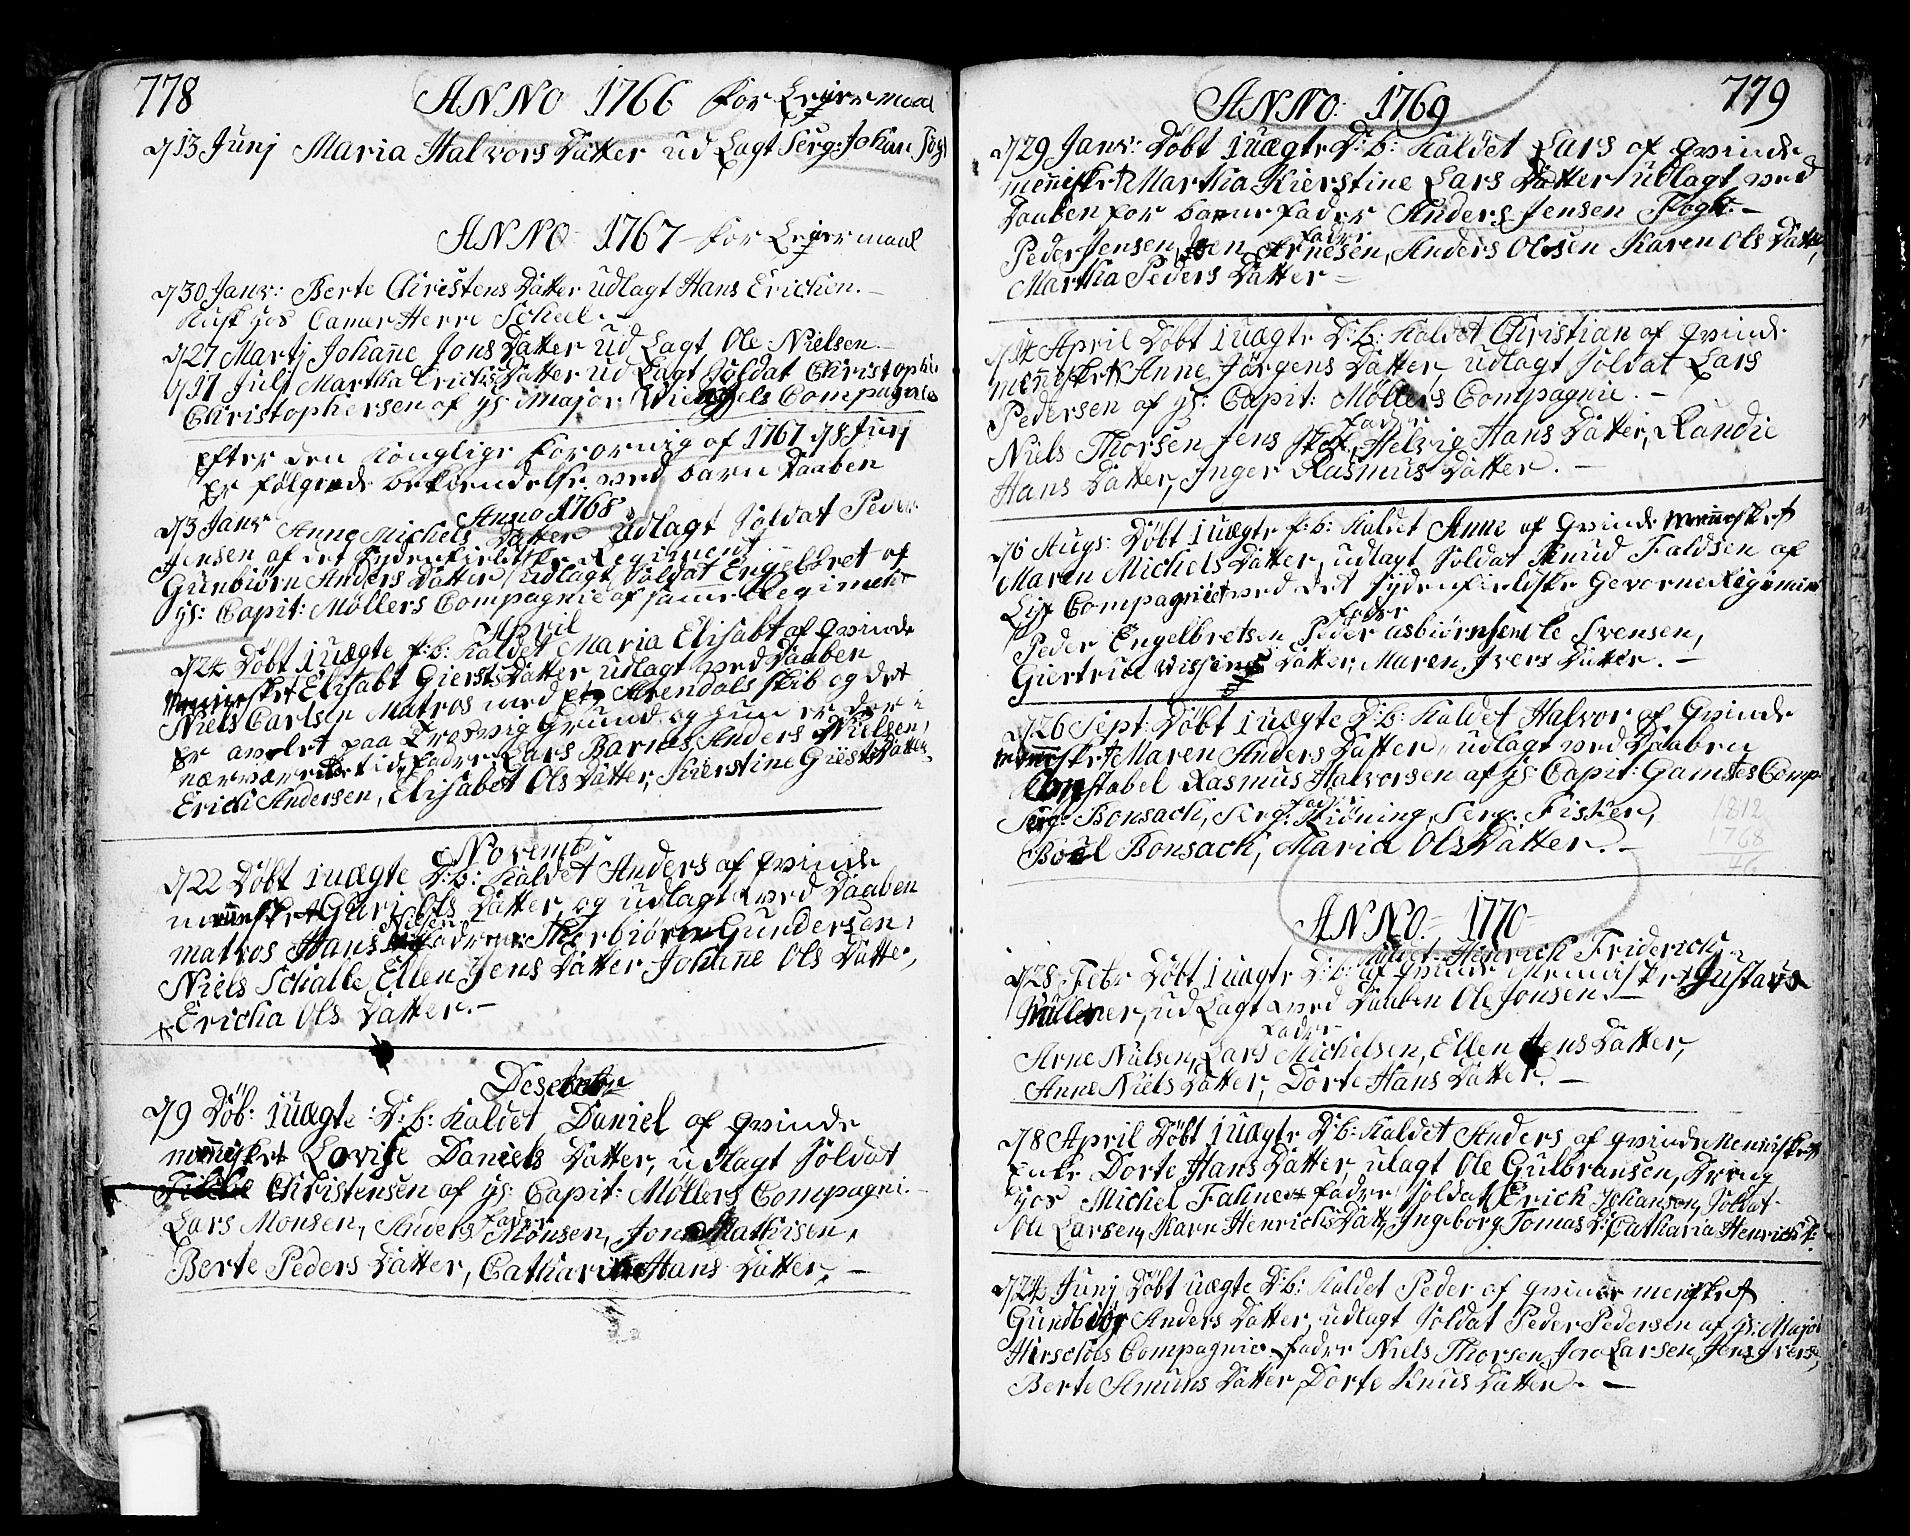 778
ANNO 1766 for Leiermaal
d/13 Junj Maria Halvors Datter ud Lagt Serg: Johan
ANNO 1767 for Leiermaal
d/30 Janv: Berte Christens Datter udlagt Hans Erichsen.
Kusk hos Camer Herre Scheel.
d/27 Martj Johanne Jons Datter ud Lagt Ole Nielsen
d/17 Julj Martha Erichs Datter ud Lagt Soldat Christopher
Christophersen af hs: Major Compagnie
efter den Konglige Forordnig af 1767 d/8 Junj
er følgende bekiendelse ved barn Daaben
Anno 1768
d/3 Janv Anne Michels Datter udlagt Soldat Peder
Jensen af det Sydenfieldske Regiment
Gunbiørn Anders Datter udlagt Soldat Engelbret af
hs: Capit: Møllers Compagnie af samme Regiment
April
d/24 Døbt 1 uægte p:b: Kaldet Maria Elisabt af qvinde
mennisket Elisabt Giersts Datter udlagt ved Daaben
Niels Carlsen Matros med et Arendals skib og det
er avelet paa Trosvig Grund og hun er der i
nærværende tid, fader Lars Barnes, Anders Nielsen,
Erich Andersen, Elisabet Ols Datter, Kierstine Giersts Datter
Novemb
d/22 Døbt 1 uægte D:b: Kaldet Anders af qvinde
mennisket Guri Ols Datter og udlagt ved Daaben
matros Hans Nilsen fadrene Therbiørn Gundersen,
Niels Schalle Ellen Jens Datter Johane Ols Datter,
Ericha Ols Datter.
Desember
d/9 Døb: 1 uægte D:b: Kaldet Daniel af qvinde
mennisket Lovise Daniels Datter, udlagt Soldat
Christensen af hs: Capit: Møllers Compagni.
fader
Lars Monsen, Anders Monsen, Jon Mathisen,
Berte Peders Datter, Catharina Hans Datter.
779
ANNO: 1769
d/29 Janv: Døbt 1 uægte D:b: Kaldet Lars af qvinde
mennisket Martha Kierstine Lars Datter udlagt ved
Daaben for barne fader Anders Jensen Foght.
fader
Peder Jensen, Jen Arnesen, Anders Olesen Karen Ols Datter,
Martha Peders Datter
d/14 April Døbt 1 uægte D:b: Kaldet Christian af qvinde
mennisket Anne Jørgens Datter, udlagt Soldat Lars
Pedersen af hs: Capit: Møllers Compagnie.
fader
Niels Thorsen Jens Skot, Helvig Hans Datter, Randie
Hans Datter, Inger Rasmus Datter.
d/6 Augs: Døbt 1 uægte p:b: Kaldet Anne af qvinde mennisket
Maren Michels Datter, udlagt Soldat Knud Faldsen af
Lif Compagniet ved det Sydenfieldske Gevorne Regiment
fader
Peder Engelbretsen Peder asbiørnsen Ole Svensen,
Giertrud Datter, Maren Ivers Datter.
d/26 Sept: Døbt 1 uægte D:b: Kaldet Halvor af qvinde
mennisket Maren Anders Datter, udlagt ved Daaben
Constabel Rasmus Halvorsen af hs: Capit: Gamstes Comp:
fader
Serg: Bonsach, Serg: Skiøning, Serg: Fisker,
Boel Bonsach, Maria Ols Datter.
1812
1768
46
ANNO: 1770
Kaldet Henrich Friderich
d/28 Febr Døbt 1 uægte D:b: af qvinde Mennisket Gustava
Müllener, udlagt ved Daaben Ole Jonsen.
fader
Arne Nielsen, Lars Michelsen, Ellen Jens Datter,
Anne Niels Datter, Dorte Hans Datter.
d/8 April Døbt 1 uægte D:b: Kaldet Anders af qvinde Mennisket
Enke Dorte Hans Datter, ulagt Ole Gulbransen, Dreng
hos Michel Falner fader Soldat Erick Johansen, Soldat
Ole Larsen, Karn Henrichs Datt, Ingeborg Tomas D: Catharia Henrichs D:
d/24 Junj Døbt uægte D:b: Kaldet Peder af qvinde mensket
Gundbiør Anders Datter, udlagt Soldat Peder Pedersen af hs: Major
Hirschos Compagnie. fader Niels Thorsen, Jen Larsen, Jens Iverse,
Berte Amuns Datter, Dorte Knus Datter.